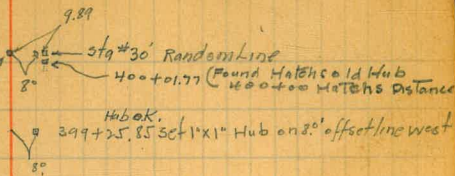 9.89
Sta #30' Random Line
8°
400+01.77 (Found Hatchs old Hub
400+00 Hatchs Distance
Hub OK.
399+25.85 Set 1"x1" Hub on 8.0' offset line west
8°